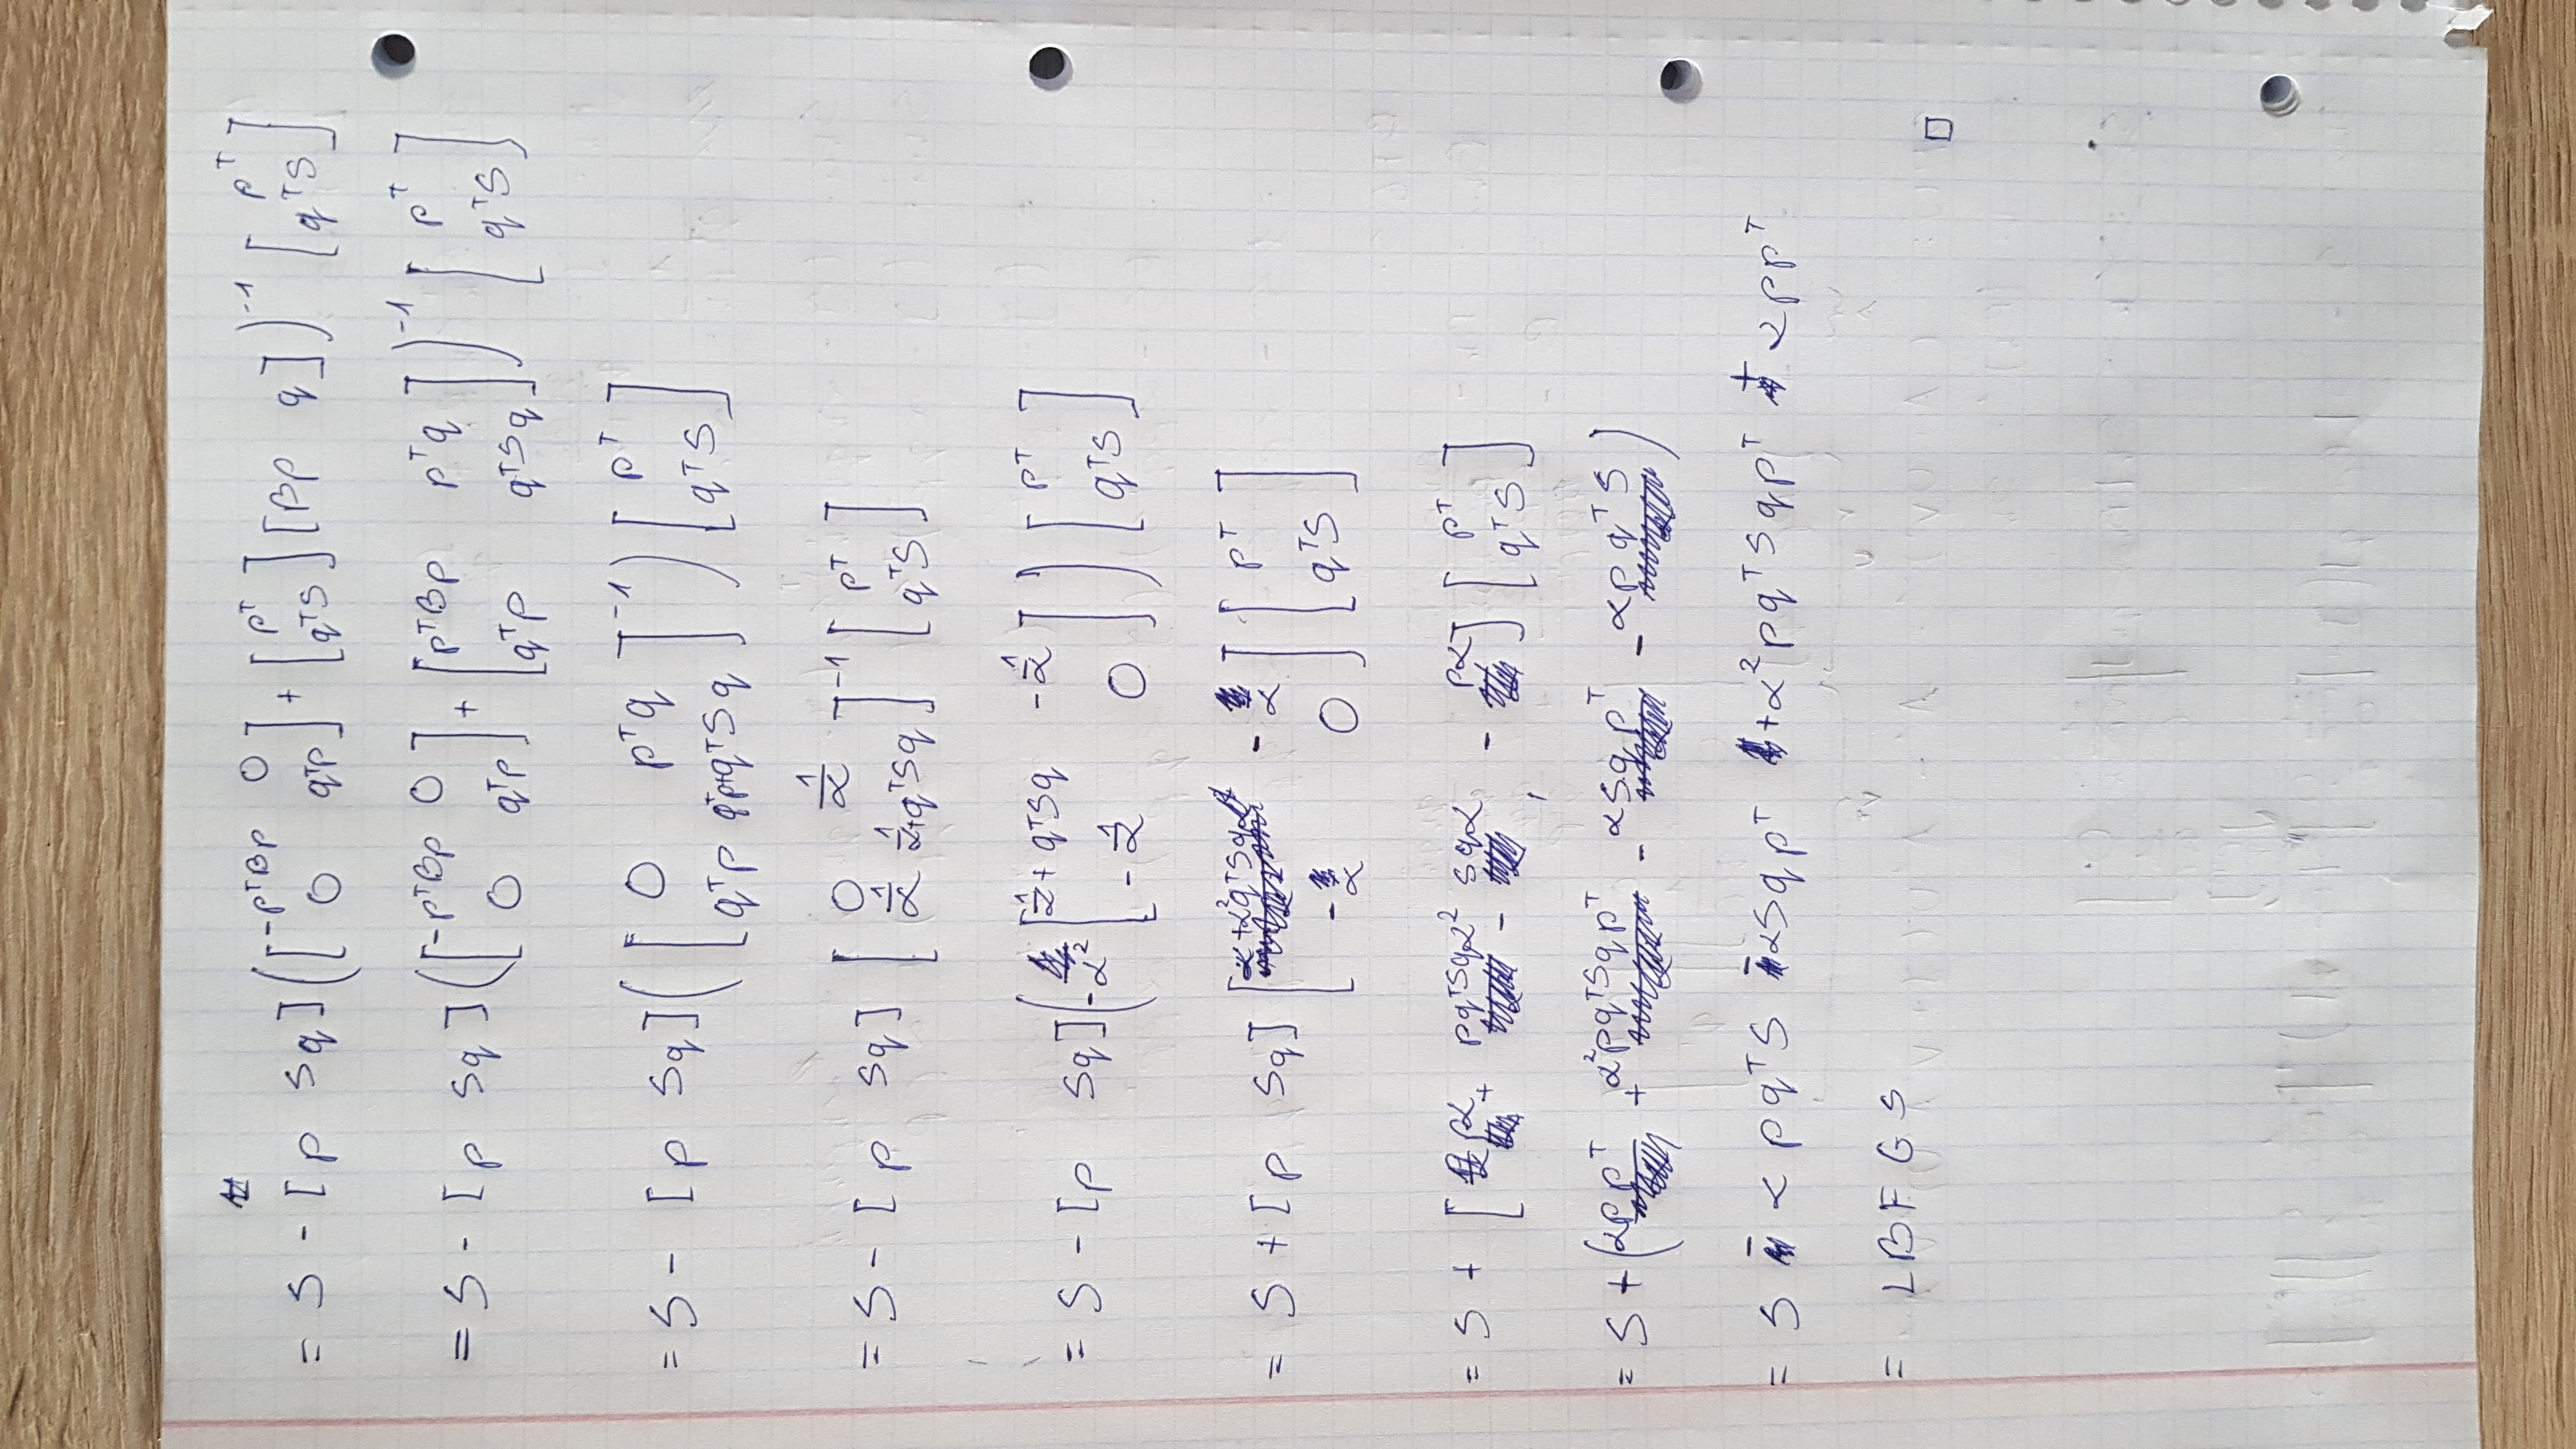 = S - [ p Sq ] ( [ -pᵀBp 0 ; 0 qᵀp ] + [ pᵀ ; qᵀS ] [ Bp q ] )⁻¹ [ pᵀ ; qᵀS ]
= S - [ p Sq ] ( [ -pᵀBp 0 ; 0 qᵀp ] + [ pᵀBp pᵀq ; qᵀp qᵀSq ] )⁻¹ [ pᵀ ; qᵀS ]
= S - [ p Sq ] ( [ 0 pᵀq ; qᵀp qᵀp+qᵀSq ]⁻¹ ) [ pᵀ ; qᵀS ]
= S - [ p Sq ] [ 0 1/α ; 1/α 1/α+qᵀSq ]⁻¹ [ pᵀ ; qᵀS ]
= S - [ p Sq ] ( -α² [ 1/α + qᵀSq -1/α ; -1/α 0 ] ) [ pᵀ ; qᵀS ]
= S + [ p Sq ] [ α+α²qᵀSq -α ; -α 0 ] [ pᵀ ; qᵀS ]
= S + [ pα + pqᵀSqα² - Sqα , - pα ] [ pᵀ ; qᵀS ]
= S + ( αppᵀ + α²pqᵀSqpᵀ - αSqpᵀ - αpqᵀS )
= S - αpqᵀS - αSqpᵀ + α²pqᵀSqpᵀ + αppᵀ
= LBFGS
□